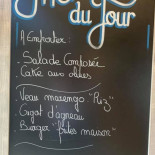 du Jour
A Emporter
. Salade Composée
. Cake aux olives
. Veau marengo "Riz"
. Gigot d'agneau
. Burger "frites maison"